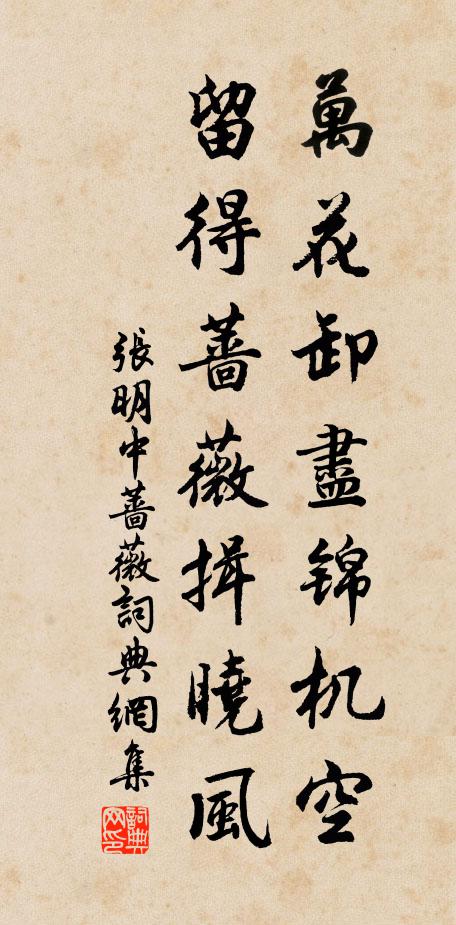 萬花卸盡錦机空
留得薔薇揖曉風
張明中薔薇詞典網集
詞典网印